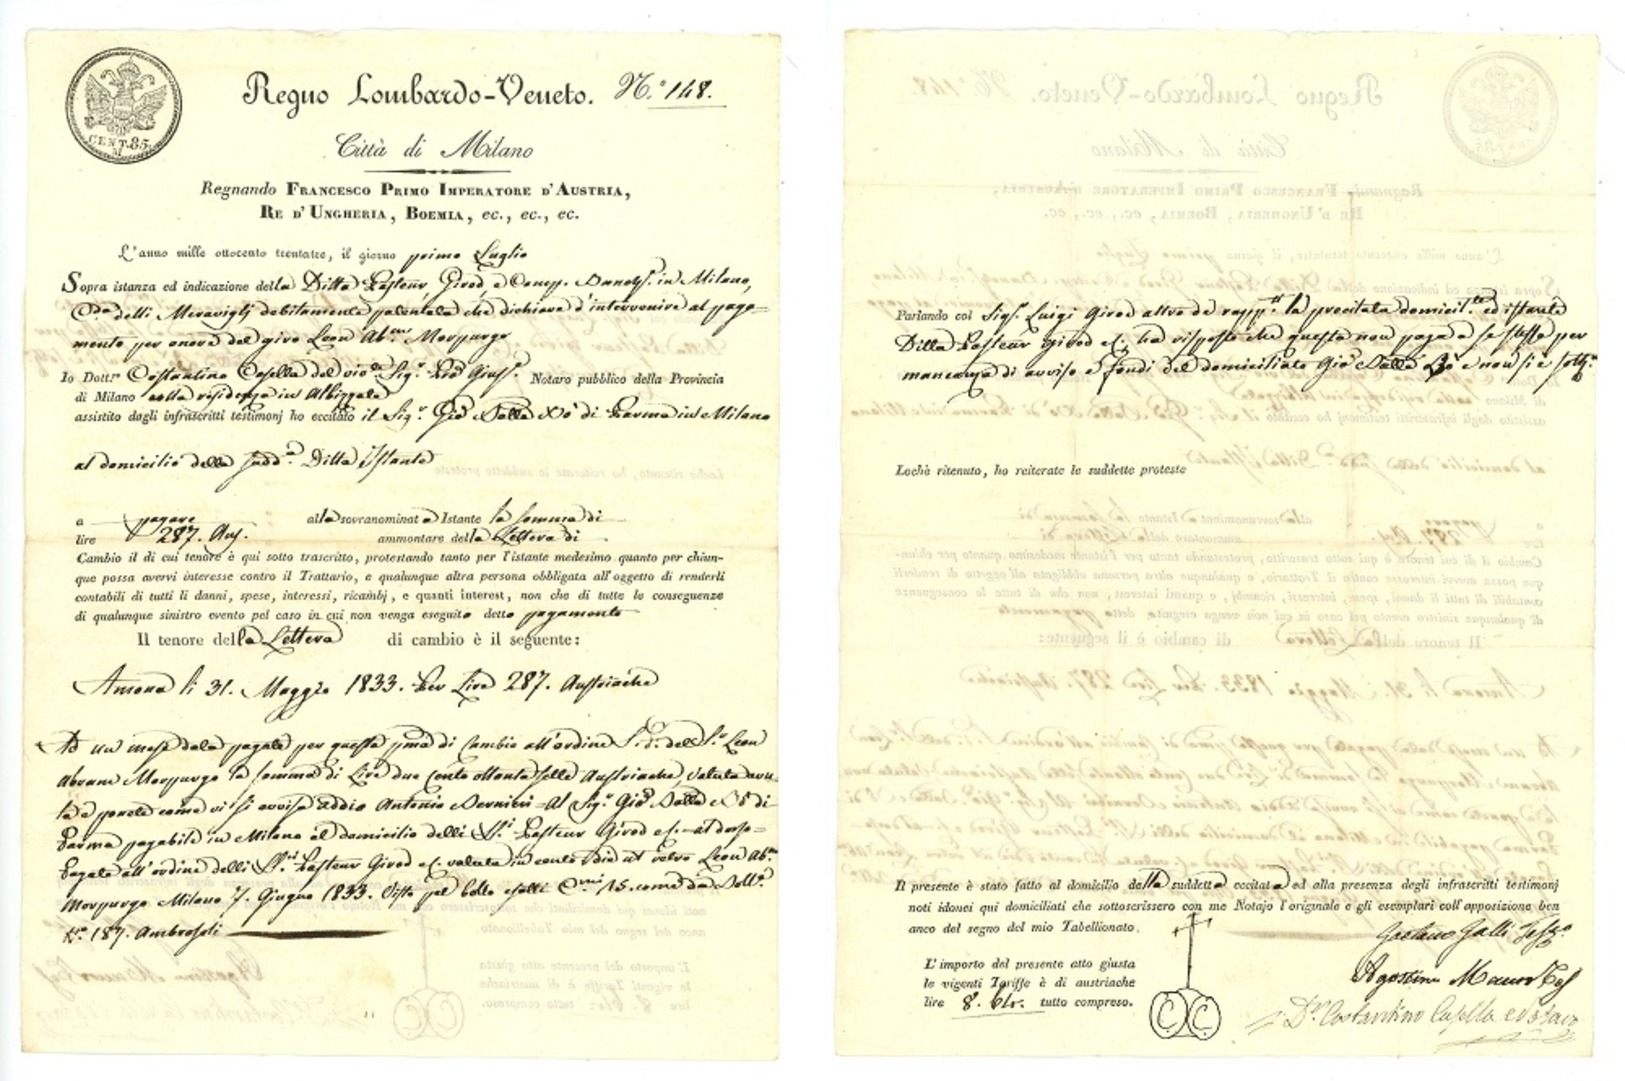 CENT. 85.
M
Regno Lombardo-Veneto. N.° 148.
Città di Milano
Regnando FRANCESCO PRIMO IMPERATORE D'AUSTRIA,
RE D'UNGHERIA, BOEMIA, ec., ec., ec.
L'anno mille ottocento trentatre, il giorno primo Luglio
Sopra istanza ed indicazione della Ditta Pasteur, Girod, e Comp. Banch. in Milano,
C.da delli Meravigli debitamente patentata che dichiara d'intervenire al paga-
mento per onore del giro Leon Ab.m Morpurgo
Io Dott.r Costantino Casella del viv.te Sig.r Gius.e Notaro pubblico della Provincia
di Milano colla residenza in Albizzate
assistito dagli infrascritti testimonj ho eccitato il Sig.r Gio Dalla Bò di Parma in Milano
al domicilio della sudd.a Ditta Istante
a pagare alla sovranominata Istante la somma di
lire 287. Aus. ammontare della Lettera di
Cambio il di cui tenore è qui sotto trascritto, protestando tanto per l'istante medesimo quanto per chiun-
que possa avervi interesse contro il Trattario, e qualunque altra persona obbligata all'oggetto di renderli
contabili di tutti li danni, spese, interessi, ricambj, e quanti interest, non che di tutte le conseguenze
di qualunque sinistro evento pel caso in cui non venga eseguito detto pagamento
Il tenore della Lettera di cambio è il seguente:
Ancona li 31. Maggio 1833. Per Lire 287. Austriache
Ad un mese data pagate per questa prima di Cambio all'ordine S. P. del S.r Leon
Abram Morpurgo la somma di Lire due cento ottanta sette Austriache, valuta avu-
ta e ponete come vi si avvisa addio Antonio Bernieri = Al Sig.r Gio Dalla Bò di
Parma pagabile in Milano al domicilio delli SS.ri Pasteur Girod e C. = al dorso =
Pagate all'ordine delli SS.ri Pasteur Girod e C. valuta in conto Leon Ab.m
Morpurgo Milano 7. Giugno 1833. Visto pel bollo esatti C.mi 15. come da Boll.a
N.° 187. Ambrosoli
Parlando col Sig.r Luigi Girod altro de rapp.ti la precitata domicil.ta ed istante
Ditta Pasteur Girod e C. ha risposto che questa non paga a se stessa per
mancanza di avviso e fondi del domiciliato Gio Dalla Bò e non si è sott.o
Lochè ritenuto, ho reiterate le suddette proteste
Il presente è stato fatto al domicilio della suddetta eccitata ed alla presenza degli infrascritti testimonj
noti idonei qui domiciliati che sottoscrissero con me Notajo l'originale e gli esemplari coll'apposizione ben
anco del segno del mio Tabellionato.
L'importo del presente atto giusta
le vigenti Tariffe è di austriache
lire 8. 61c. tutto compreso.
C. C.
Gaetano Galli Test.o
Agostino Mauro Tes
D.r Costantino Casella Notaro